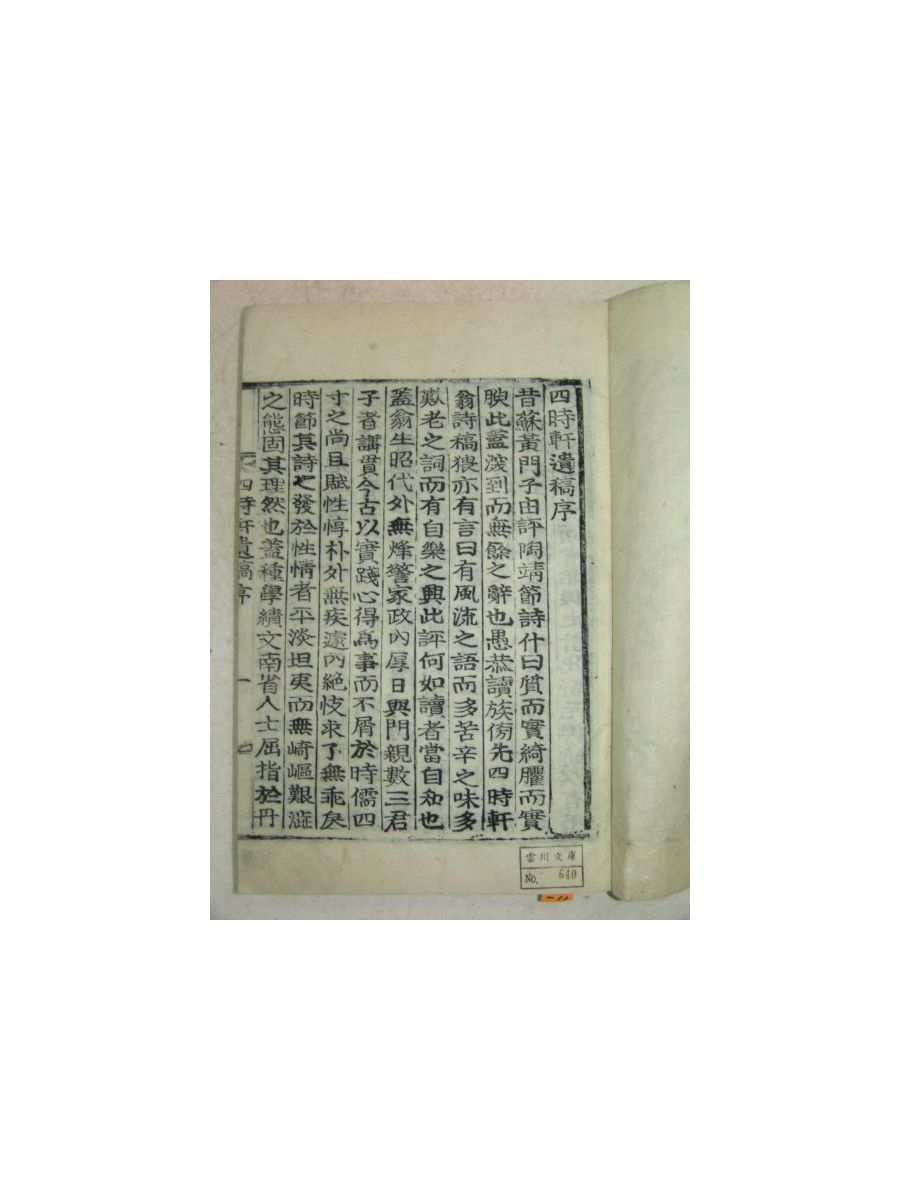 四時軒遺稿序
昔蘇黃門子由評陶靖節詩什曰質而實綺臞而實
腴此蓋深到而無餘之辭也愚恭讀族傍先四時軒
翁詩稿猥亦有言曰有風流之語而多苦辛之味多
歎老之詞而有自樂之興此評何如讀者當自知也
蓋翁生昭代外無烽警家政內厚日與門親數三君
子者講貫今古以實踐心得爲事而不屑於時儒四
寸之尚且賦性惇朴外無疾遽內絶忮求了無乖戾
時節其詩之發於性情者平淡坦夷而無崎嶇艱澁
之態固其理然也蓋種學績文南省人士屈指於丹
四時軒遺稿序 一
雲川文庫
No. 640